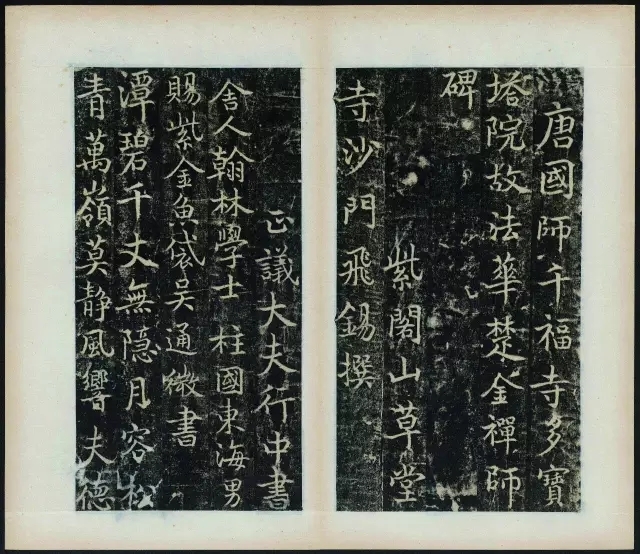 唐國師千福寺多寶
塔院故法華楚金禪師
碑
紫閣山草堂
寺沙門飛錫撰
正議大夫行中書
舍人翰林學士柱國東海男
賜紫金魚袋吳通微書
潭碧千丈無隐月容松
青萬嶺莫静風響夫德